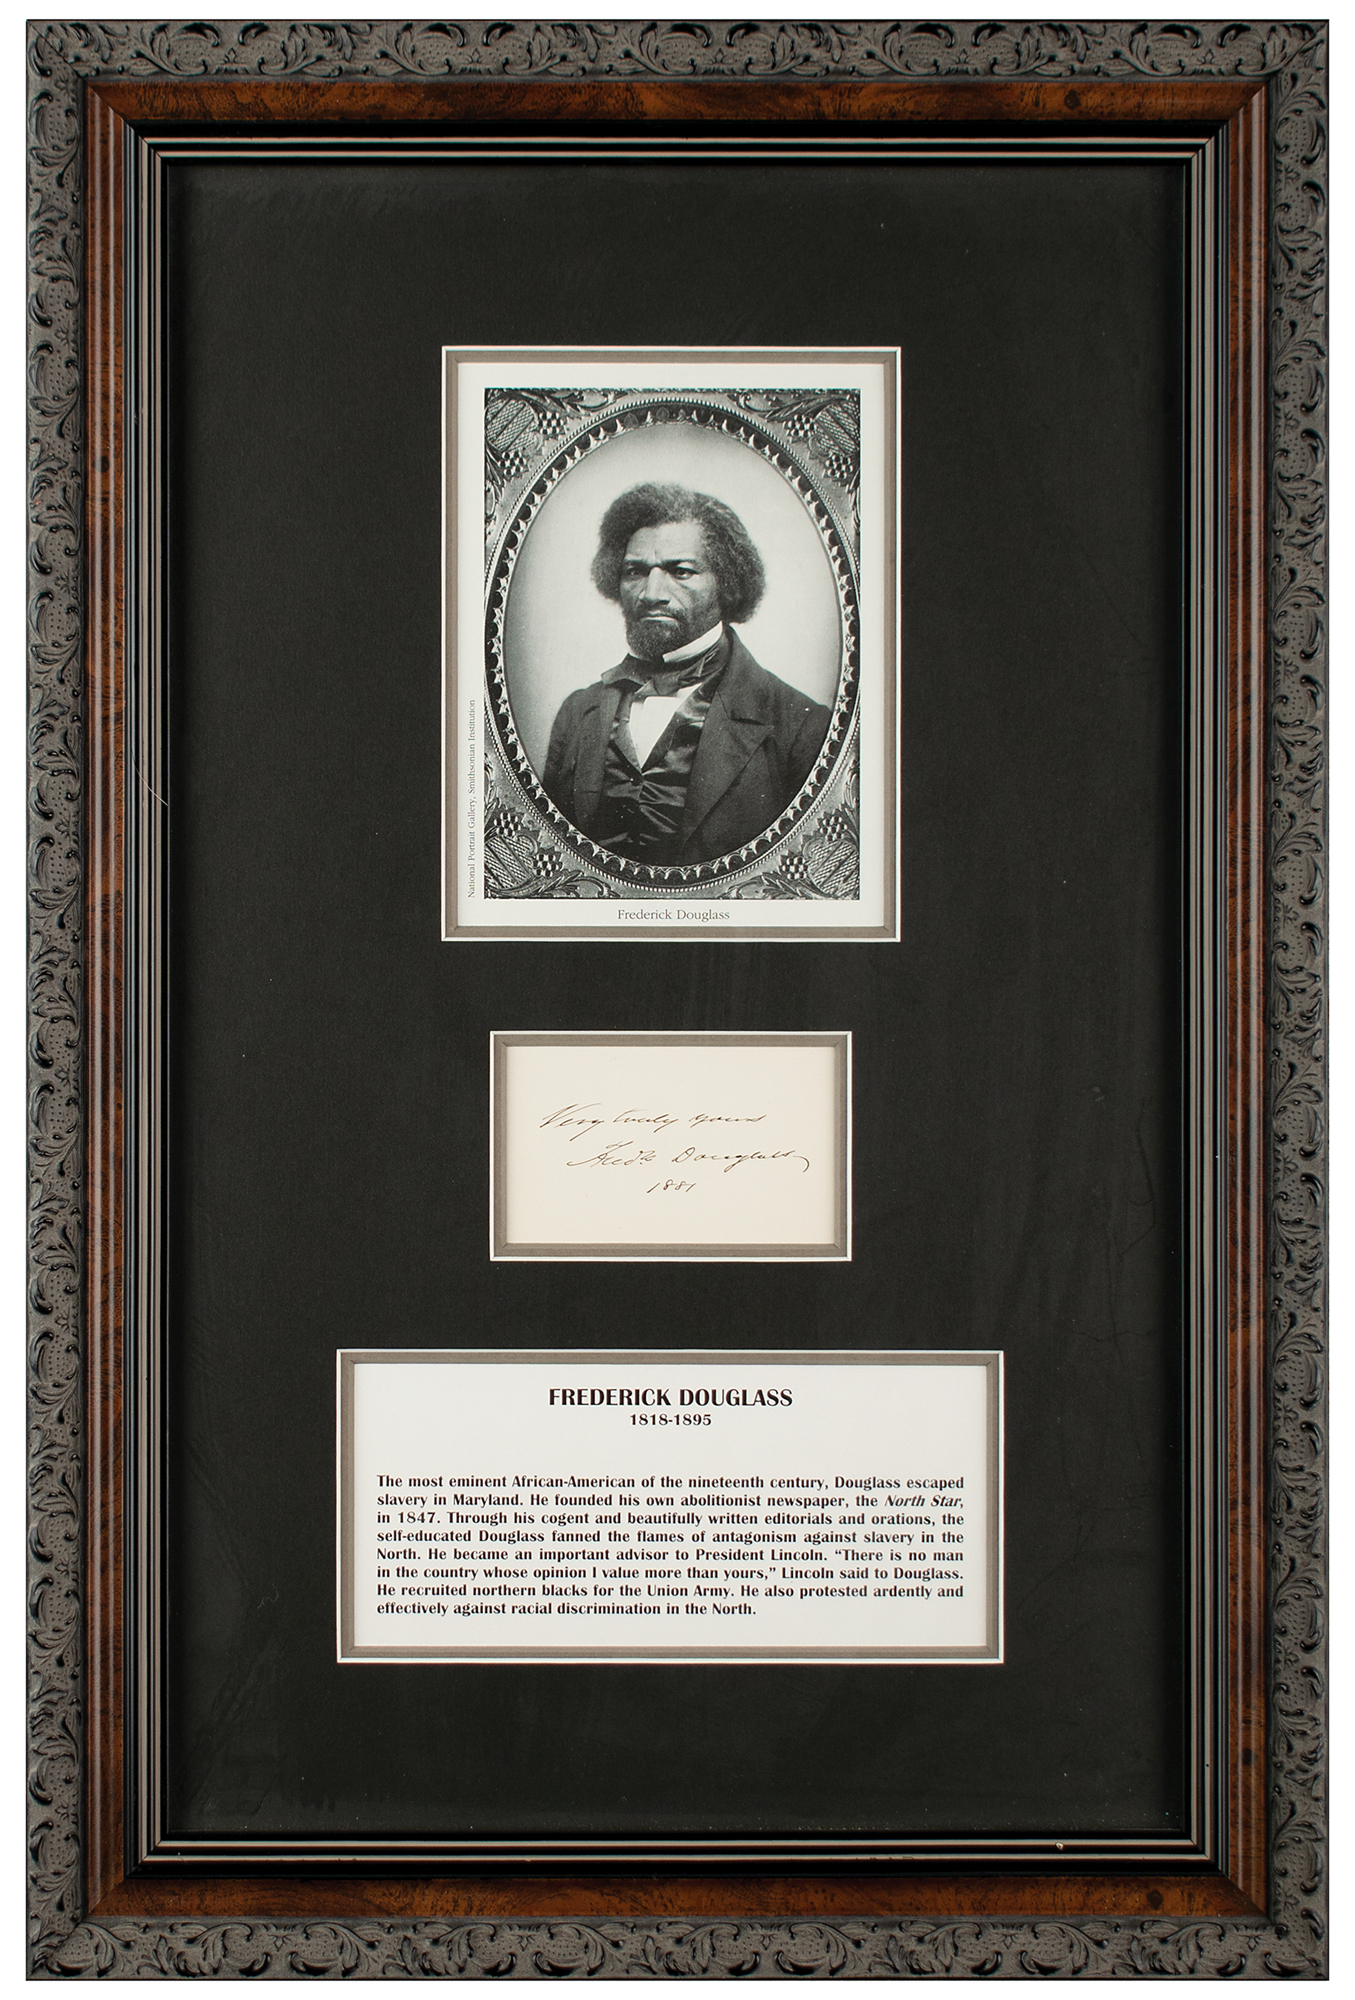 National Portrait Gallery, Smithsonian Institution
Frederick Douglass
Very truly yours
Fredk Douglass
1881
FREDERICK DOUGLASS
1818-1895
The most eminent African-American of the nineteenth century, Douglass escaped
slavery in Maryland. He founded his own abolitionist newspaper, the North Star,
in 1847. Through his cogent and beautifully written editorials and orations, the
self-educated Douglass fanned the flames of antagonism against slavery in the
North. He became an important advisor to President Lincoln. “There is no man
in the country whose opinion I value more than yours,” Lincoln said to Douglass.
He recruited northern blacks for the Union Army. He also protested ardently and
effectively against racial discrimination in the North.